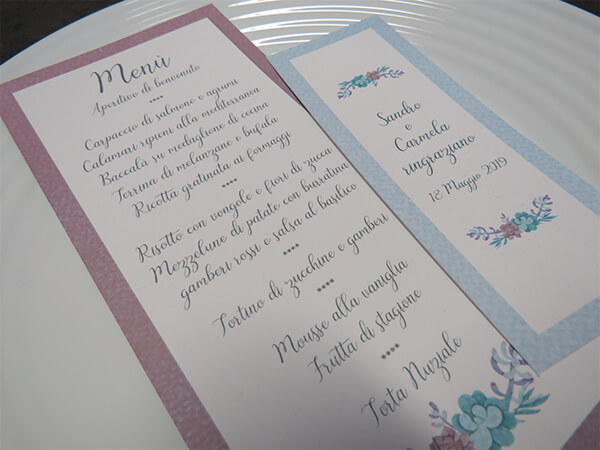 Menù
Aperitivo di benvenuto
****
Carpaccio di salmone e agrumi
Calamari ripieni alla mediterranea
Baccalà su medaglione di cocina
Terrina di melanzane e bufala
Ricotta gratinata ai formaggi
****
Risotto con vongole e fiori di zucca
Mezzelune di patate con burratina
gamberi rossi e salsa al basilico
****
Tortino di zucchine e gamberi
****
Mousse alla vaniglia
Frutta di stagione
****
Torta Nuziale
Sandro
e
Carmela
ringraziano
18 Maggio 2019